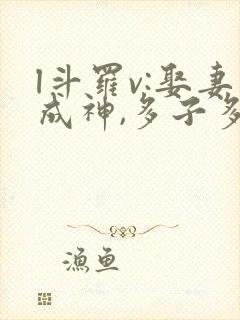 l斗罗v:娶妻
成神,多子多
渔鱼